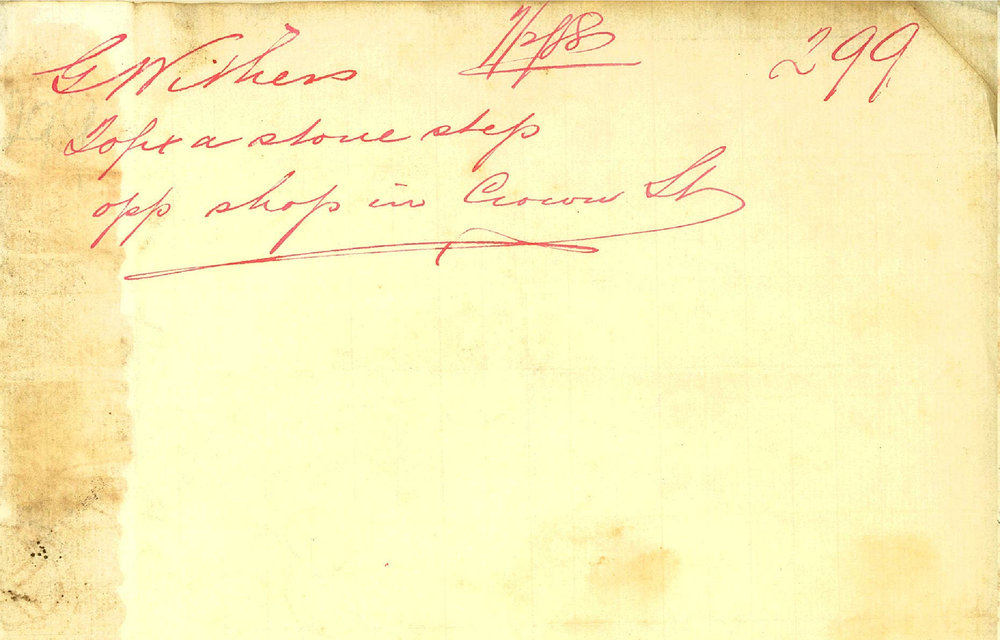 G Withers 7/2/88 299
To fix a stone step
opp shop in Crown St